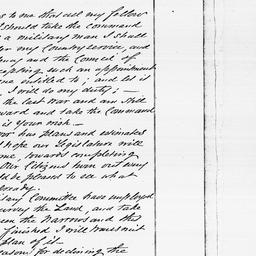 s to me that all my fellow
should take the command
a military man I shall
my Country service, and
and the Council of
accepting such an appointment
entitled to; and let it
I will do my duty; —
the last War and am still
ward and take the Command
is your wish —
has plans and estimates
I hope our Legislature will
me, towards completing
Our Citizens turn out very
be pleased to see what
already.
tary Committee have employed
survey the Land, and take
the Narrows and this
finished I will transmit
plan of it —
reasons for declining the